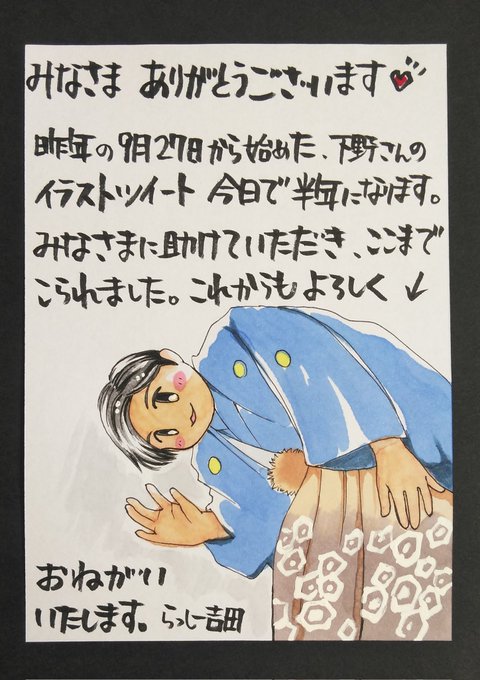 みなさま ありがとうございます
昨年の9月27日から始めた、下野さんの
イラストツイート 今日で半年になります。
みなさまに助けていただき、ここまで
こられました。これからもよろしく↓
おねがい
いたします。らっしー吉田